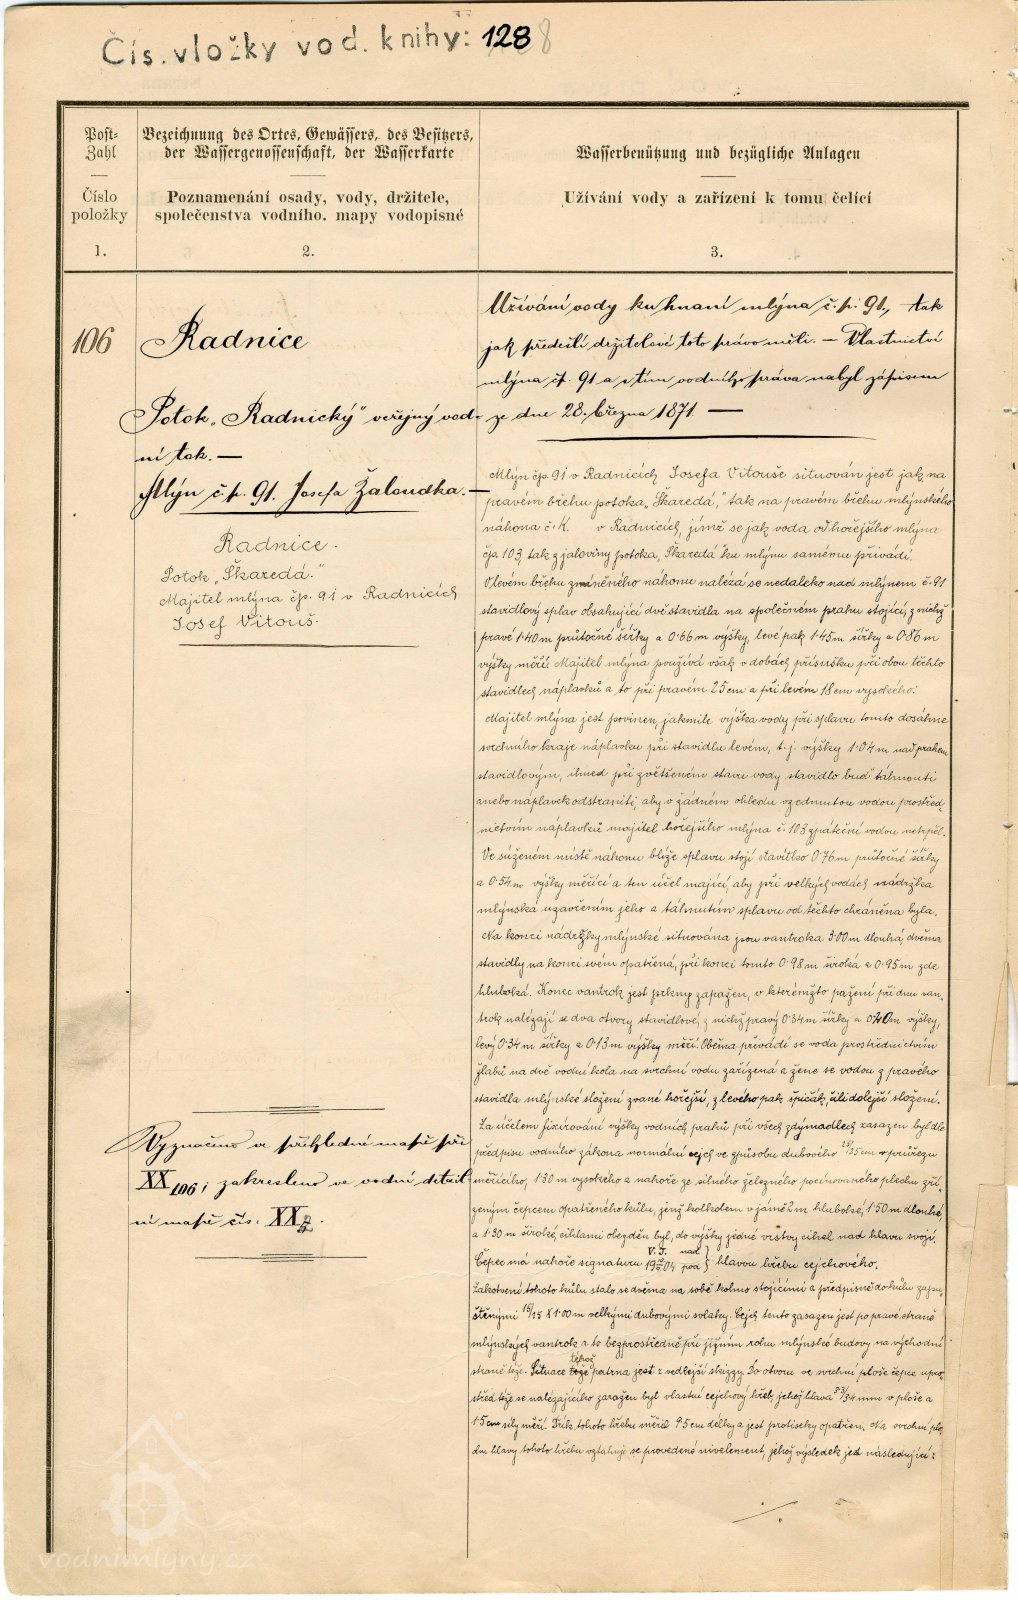 Čís. vložky vod. knihy: 128
Post-
Zahl
Číslo
položky
1.
Bezeichnung des Ortes, Gewässers, des Besitzers,
der Wassergenossenschaft, der Wasserkarte
Poznamenání osady, vody, držitele,
společenstva vodního. mapy vodopisné
2.
Wasserbenützung und bezügliche Anlagen
Užívání vody a zařízení k tomu čelící
3.
106
Radnice
Potok „Radnický" veřejný vod-
ní tok. —
Mlýn č.p. 91. Josefa Žaloudka. —
Radnice.
Potok „Škaredá."
Majitel mlýna čp. 91 v Radnicích
Josef Vitouš.
Vyznačeno v přehledné mapě při
XX 106; zakresleno ve vodní detail-
ní mapě čís. XX
Užívání vody ku hnaní mlýna č.p. 91., tak
jak předešlí držitelové toto právo měli. — Vlastnictví
mlýna čp. 91 a s tím vodního práva nabyl zápisem
ze dne 28. března 1871. —
Mlýn čp. 91 v Radnicích Josefa Vitouše situován jest jak na
pravém břehu potoka „Škaredá," tak na pravém břehu mlýnského
náhona č. K. v Radnicích, jímž se jak voda od hořejšího mlýna
čp. 103, tak z jaloviny potoka „Škaredá" ku mlýnu samému přivádí.
V levém břehu zmíněného náhonu nalézá se nedaleko nad mlýnem č. 91
stavidlový splav obsahující dvě stavidla na společném prahu stojící, z nichž
pravé 1·40 m průtočné šířky a 0·66 m výšky, levé pak 1·45 m šířky a 0·86 m
výšky měří. Majitel mlýna používá však v dobách přísušku při obou těchto
stavidlech náplavků a to při pravém 25 cm a při levém 18 cm vysokého.
Majitel mlýna jest povinen, jakmile výška vody při splavu tomto dosáhne
svrchního kraje náplavku při stavidlu levém, t. j. výšky 1·04 m nad prahem
stavidlovým, ihned při zvětšeném stavu vody stavidlo buď táhnouti
anebo náplavek odstraniti, aby v žádném ohledu vzedmutou vodou prostřed-
nictvím náplavků majitel hořejšího mlýna č. 103 zpáteční vodou netrpěl.
Ve súženém místě náhonu blíže splavu stojí stavítko 0·76 m průtočné šířky
a 0·54 m výšky měřící a ten účel mající, aby při velkých vodách nádržka
mlýnská uzavřením jeho a táhnutím splavu od těchto chráněna byla.
Na konci nádržky mlýnské situována jsou vantroka 3·00 m dlouhá, dvěma
stavidly na konci svém opatřená, při konci tomto 0·98 m široká a 0·95 m zde
hluboká. Konec vantrok jest prkny zapažen, v kterémžto pažení při dnu van-
trok nalézají se dva otvory stavidlové, z nichž pravý 0·34 m šířky a výšky,
levý 0·34 m šířky a 0·13 m výšky měří. Oběma přivádí se voda prostřednictvím
žlabů na dvě vodní kola na svrchní vodu zařízená a žene se vodou z pravého
stavidla mlýnské složení zvané hořejší, z levého pak špičák, čili dolejší složení.
Za účelem fixirování výšky vodních prahů při všech zdýmadlech zasazen byl dle
předpisu vodního zákona normální cejch ve způsobu dubového 25/25 cm v průřezu
měřícího, 1·30 m vysokého a nahoře ze silného železného pocínovaného plechu zří-
zeným čepcem opatřeného kůlu, jenž kolkolem v jámě 2 m hluboké, 1·50 m dlouhé,
a 1·30 m široké, cihlami obezděn byl, do výšky jedné vrstvy cihel nad hlavu svoji.
Čepec má nahoře signaturu V. J. 19 04 nad pod } hlavou hřebu cejchového.
Zakotvení tohoto kůlu stalo se dvěma na sobě kolmo stojícími a předpisně do kůlu zapu-
štěnými 15/15 X 1·00 m velkými dubovými sloupky. Cejch tento zasazen jest po pravé straně
mlýnských vantrok a to bezprostředně při jižním rohu mlýnské budovy na východní
straně téže. Situace téhož patrna jest z vedlejší skizzy. Do otvoru ve svrchní ploše čepce upro-
střed téže se nalézajícího zaražen byl vlastní cejchovy hřeb, jehož hlava 53/54 mm v ploše a
1·5 cm síly měří. Dřík tohoto hřebu měří 9·5 cm délky a jest protisky opatřen. Na svrchní plo-
chu hlavy tohoto hřebu vztahuje se provedené nivelement, jehož výsledek jest následující:
./.
vodnimlyny.cz